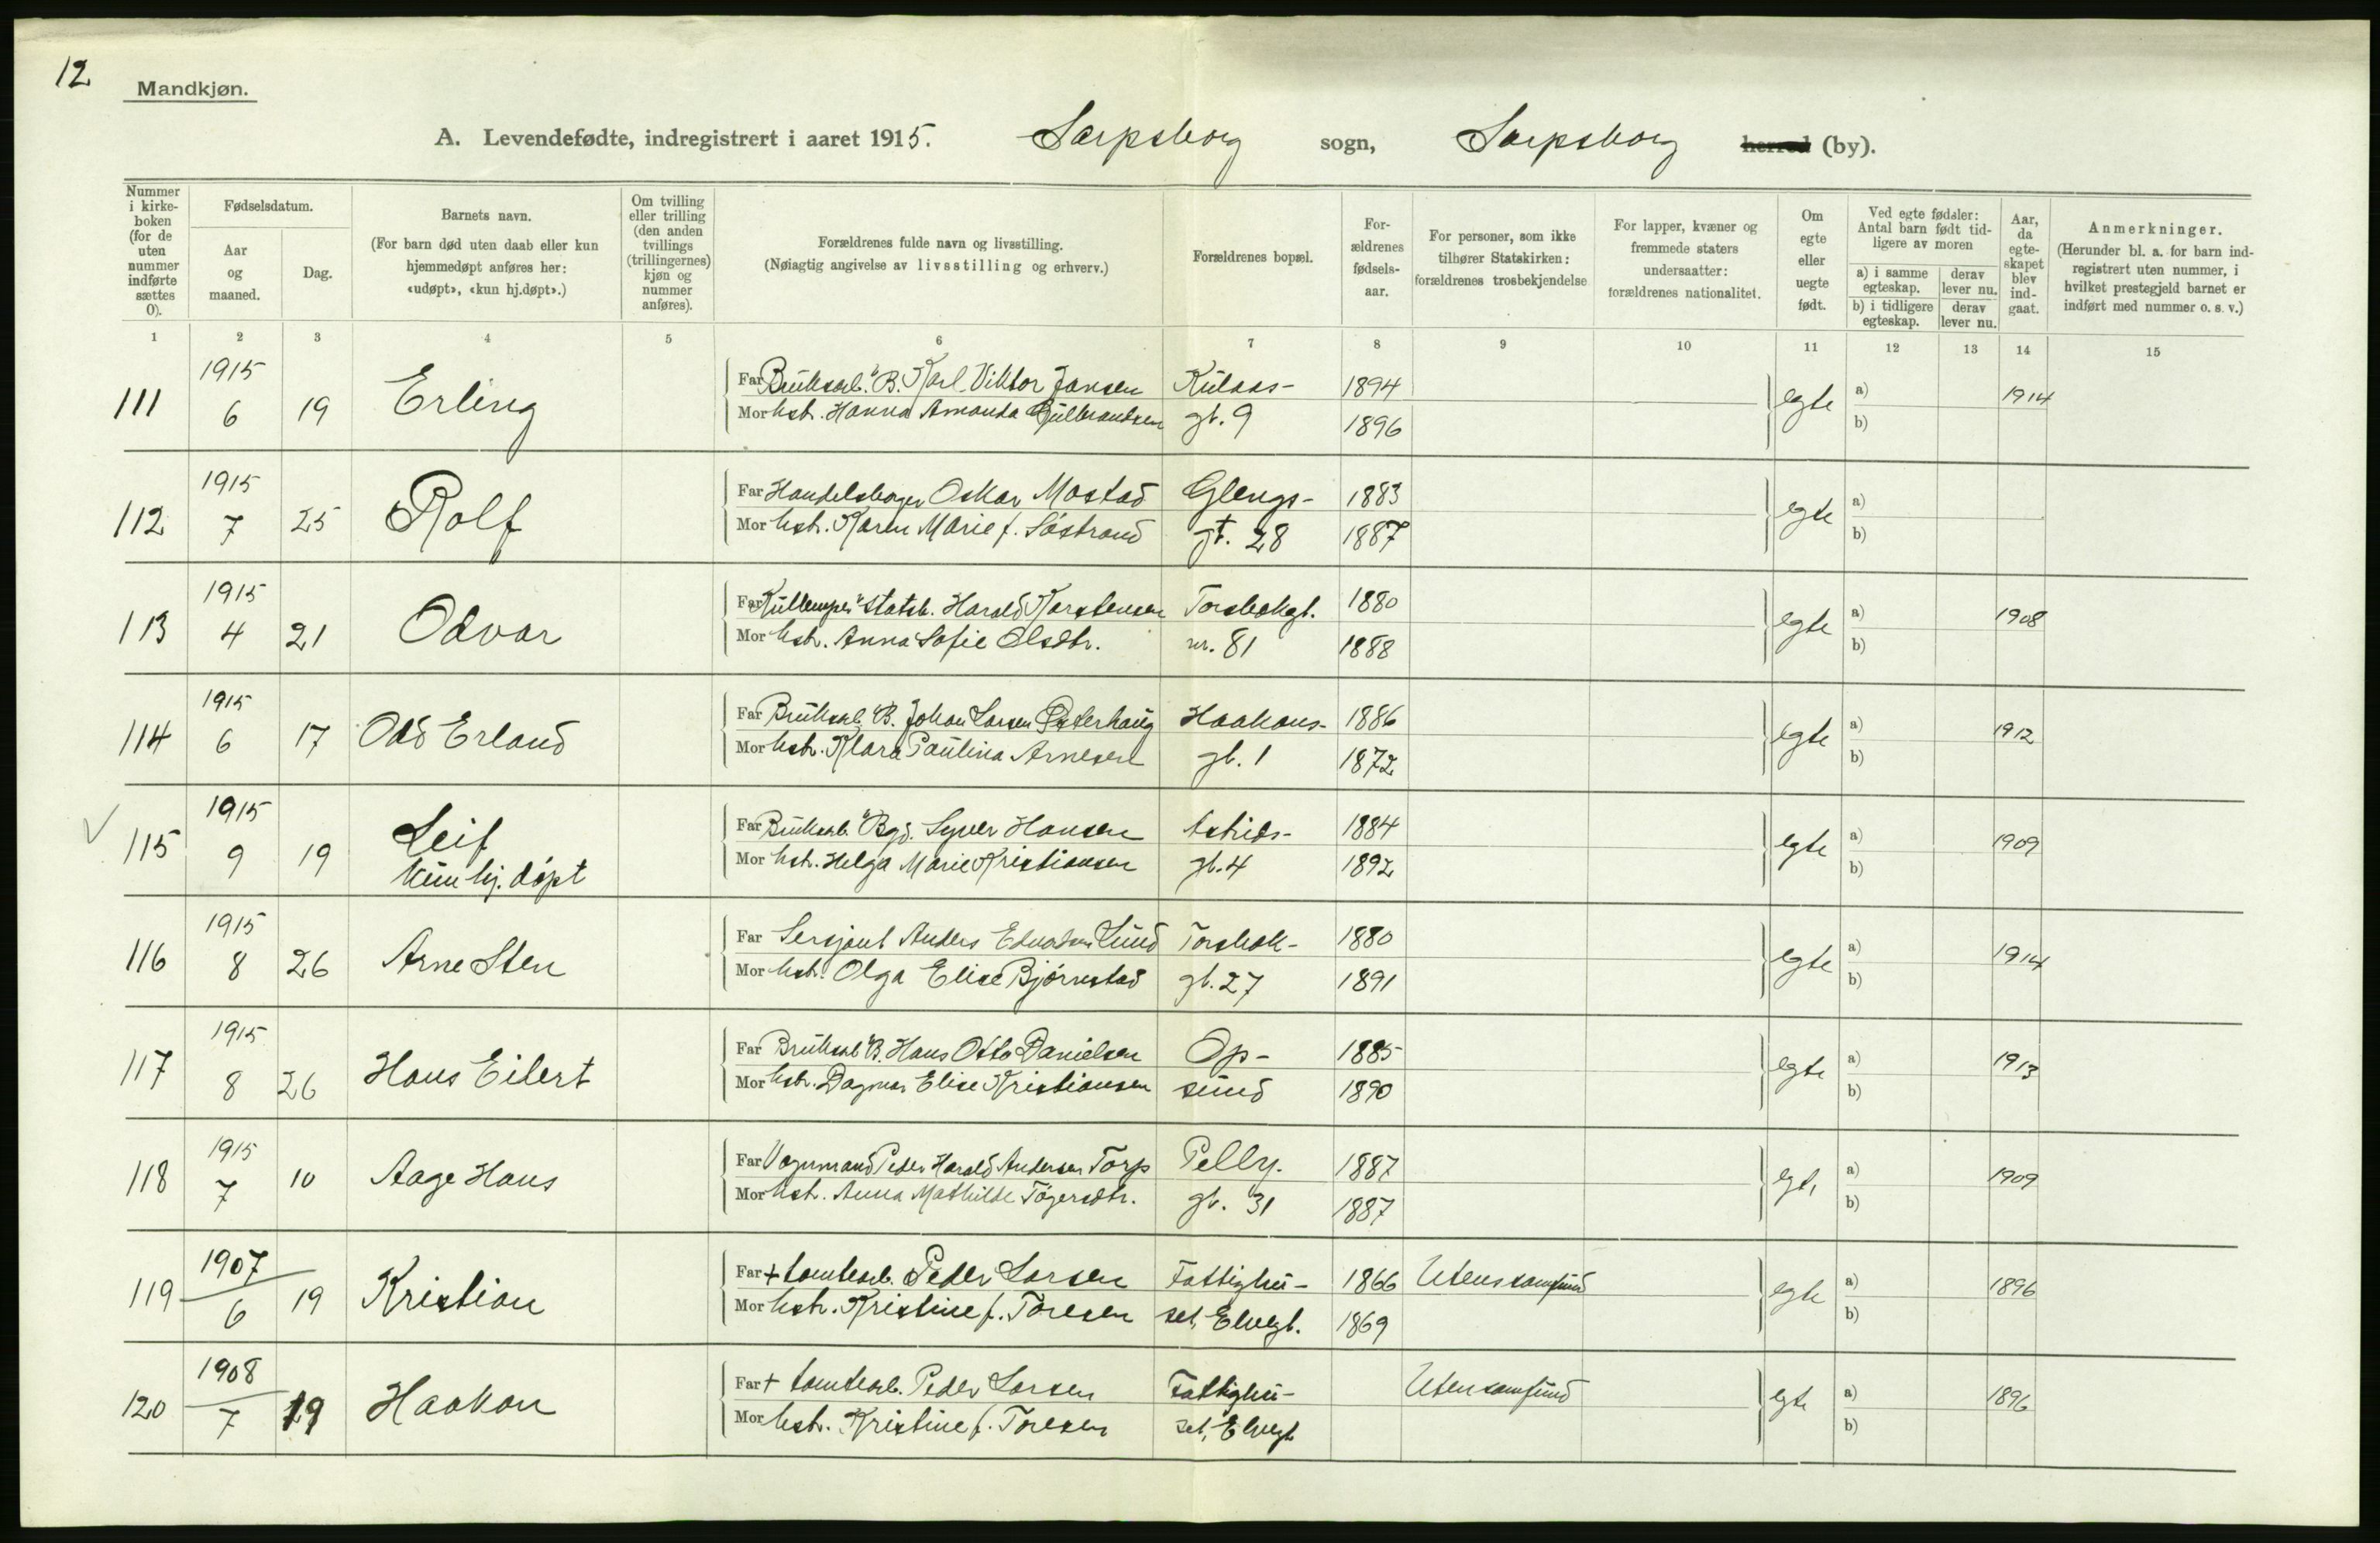 12
Mandkjøn.
A. Levendefødte, indregistrert i aaret 1915. Sarpsborg sogn, Sarpsborg herred (by).
Nummer i kirkeboken (for de uten nummer indførte sættes 0).
Fødselsdatum.
Aar og maaned.
Dag.
Barnets navn.
(For barn død uten daab eller kun hjemmedøpt anføres her: «udøpt», «kun hj.døpt».)
Om tvilling eller trilling (den anden tvillings (trillingernes) kjøn og nummer anføres).
Forældrenes fulde navn og livsstilling.
(Nøiagtig angivelse av livsstilling og erhverv.)
Forældrenes bopæl.
For-ældrenes fødsels-aar.
For personer, som ikke tilhører Statskirken: forældrenes trosbekjendelse
For lapper, kvæner og fremmede staters undersaatter: forældrenes nationalitet.
Om egte eller uegte født.
Ved egte fødsler: Antal barn født tid-ligere av moren
a) i samme egteskap.
derav lever nu.
b) i tidligere egteskap.
derav lever nu.
Aar, da egte-skapet blev ind-gaat.
Anmerkninger.
(Herunder bl. a. for barn ind-registrert uten nummer, i hvilket prestegjeld barnet er indført med nummer o. s. v.)
1 2 3 4 5 6 7 8 9 10 11 12 13 14 15
1915 Far Bruksarb. B. Karl Viktor Jansen Kulaas- 1894 a) 1914
111 6 19 Erling Mor hstr. Hanna Amanda Gulbrandsen gt. 9 1896 egte b)
1915 Far Handelsborger Oskar Mostad Glengs- 1883 a)
112 7 25 Rolf Mor hstr. Karen Marie f. Søstrand gt. 28 1887 egte b)
1915 Far statsb. Harald Karstensen Torsbekgt. 1880 a) 1908
113 4 21 Odvar Mor hstr. Anna Sofie Olsdtr. nr. 81 1888 egte b)
1915 Far Bruksarb. B. Johan Larsen Østerhaug Haakons- 1886 a) 1912
114 6 17 Odd Erland Mor hstr. Klara Paulina Arnesen gt. 1 1872 egte b)
1915 Far Bruksarb. Bgd. Syver Hansen Astrids- 1884 a) 1909
115 9 19 Leif Mor hstr. Helga Marie Kristiansen gt. 4 1892 egte b)
kun hj. døpt
1915 Far Sersjant Anders Edvardsen Lund Torsbek- 1880 a) 1914
116 8 26 Arne Sten Mor hstr. Olga Elise Bjørnstad gt. 27 1891 egte b)
1915 Far Bruksarb. B. Hans Otto Danielsen Op- 1885 a) 1913
117 8 26 Hans Eilert Mor hstr. Dagmar Elise Kristiansen sund 1890 egte b)
1915 Far Vognmand Peder Harald Andersen Torp Pelly. 1887 a) 1909
118 7 10 Aage Hans Mor hstr. Anna Mathilde Tøgersdtr. gt. 31 1887 egt, b)
1907 Far + tomtearb. Peder Larsen Fattighu- 1866 Utens samfund a) 1896
119 6 19 Kristian Mor hstr. Kristine f. Toresen set, Elvegt. 1869 egte b)
1908 Far + tomtearb. Peder Larsen Fattighu- Uten samfund a) 1896
120 7 19 Haakon Mor hstr. Kristine f. Toresen set, Elvegt egte b)